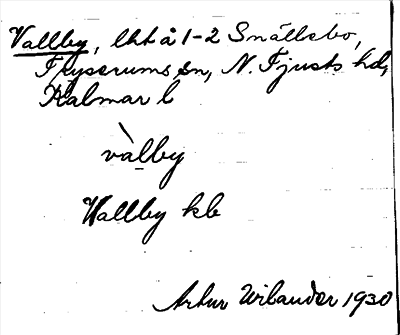 Vallby, lht å 1-2 Smällsbo,
Fryserums sn, N. Tjusts hd,
Kalmar l
vàlby
Wallby kb
Artur Wilander 1930